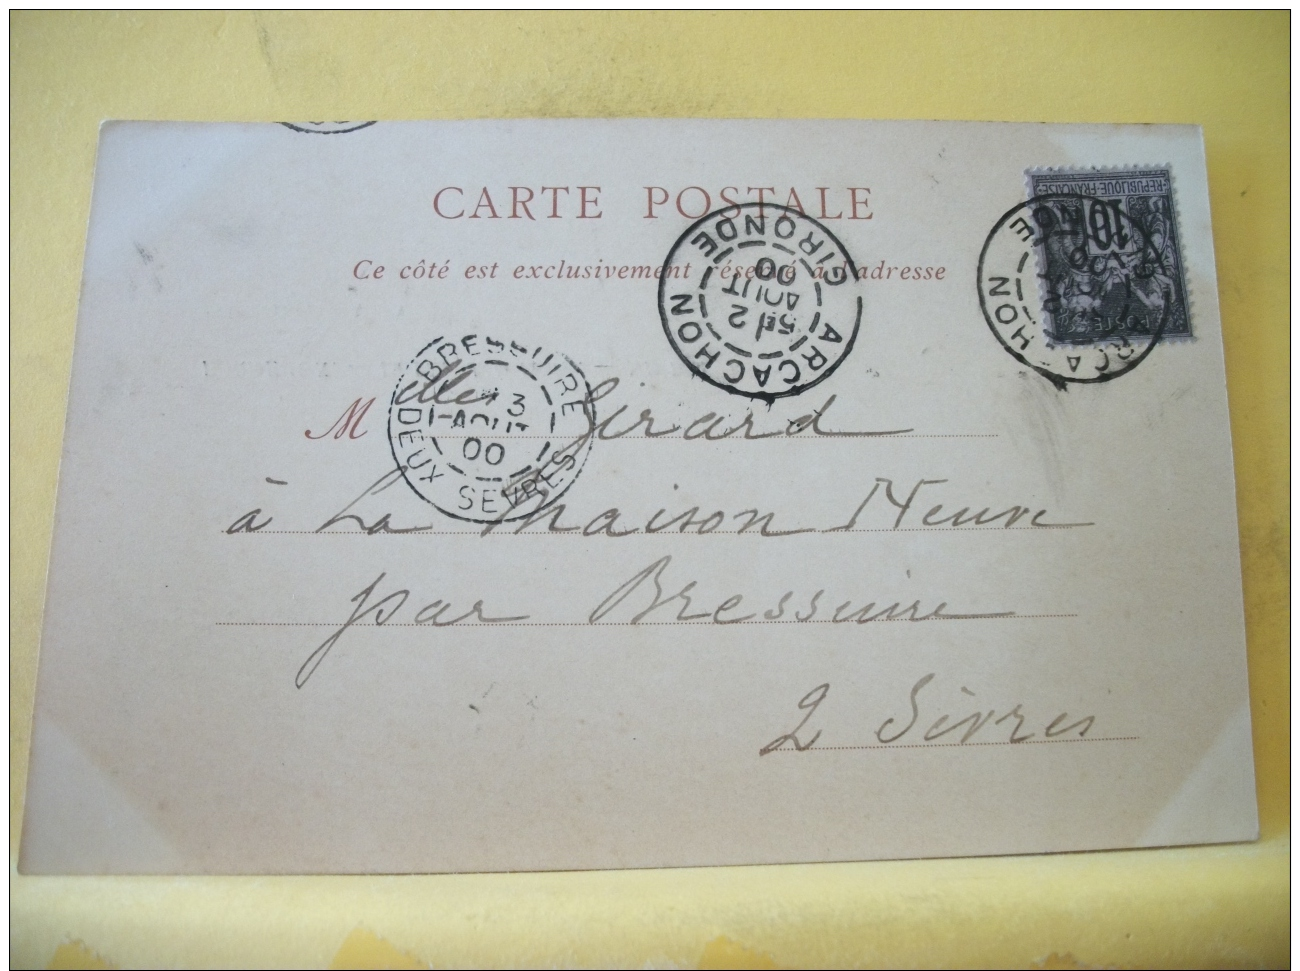 CARTE POSTALE
Ce côté est exclusivement réservé à l'adresse
REPUBLIQUE FRANÇAISE
10
POSTES
ARCACHON
GIRONDE
5E 2
AOUT
00
BRESSUIRE
3
AOUT
00
DEUX SEVRES
Melles Girard
à La Maison Neuve
par Bressuire
2 Sèvres